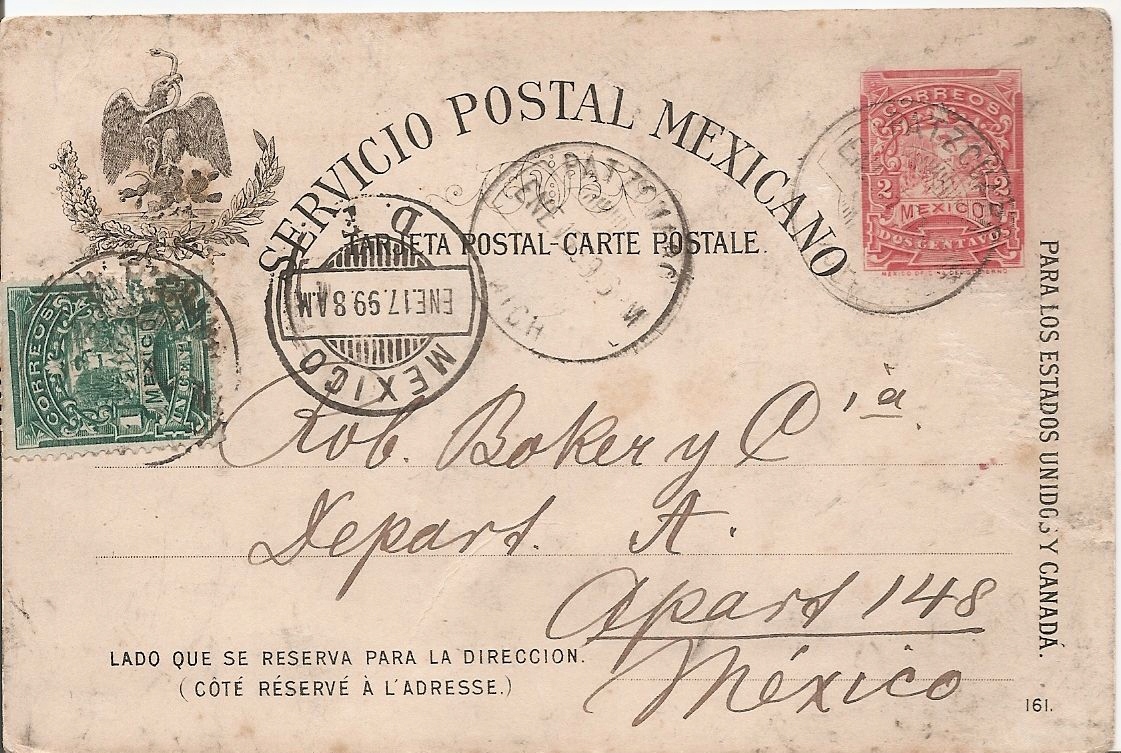 SERVICIO POSTAL MEXICANO
TARJETA POSTAL-CARTE POSTALE.
CORREOS
2 2
MEXICO
DOS CENTAVOS
CORREOS
MEXICO
1
UN CENTAVO
MEXICO D.F.
ENE.17.99.8 AM
ENE
MICH
PARA LOS ESTADOS UNIDOS Y CANADÁ.
Rob. Boker y Cia
Depart. A.
Apart 148
México
LADO QUE SE RESERVA PARA LA DIRECCION.
(CÔTÉ RÉSERVÉ À L'ADRESSE.)
161.